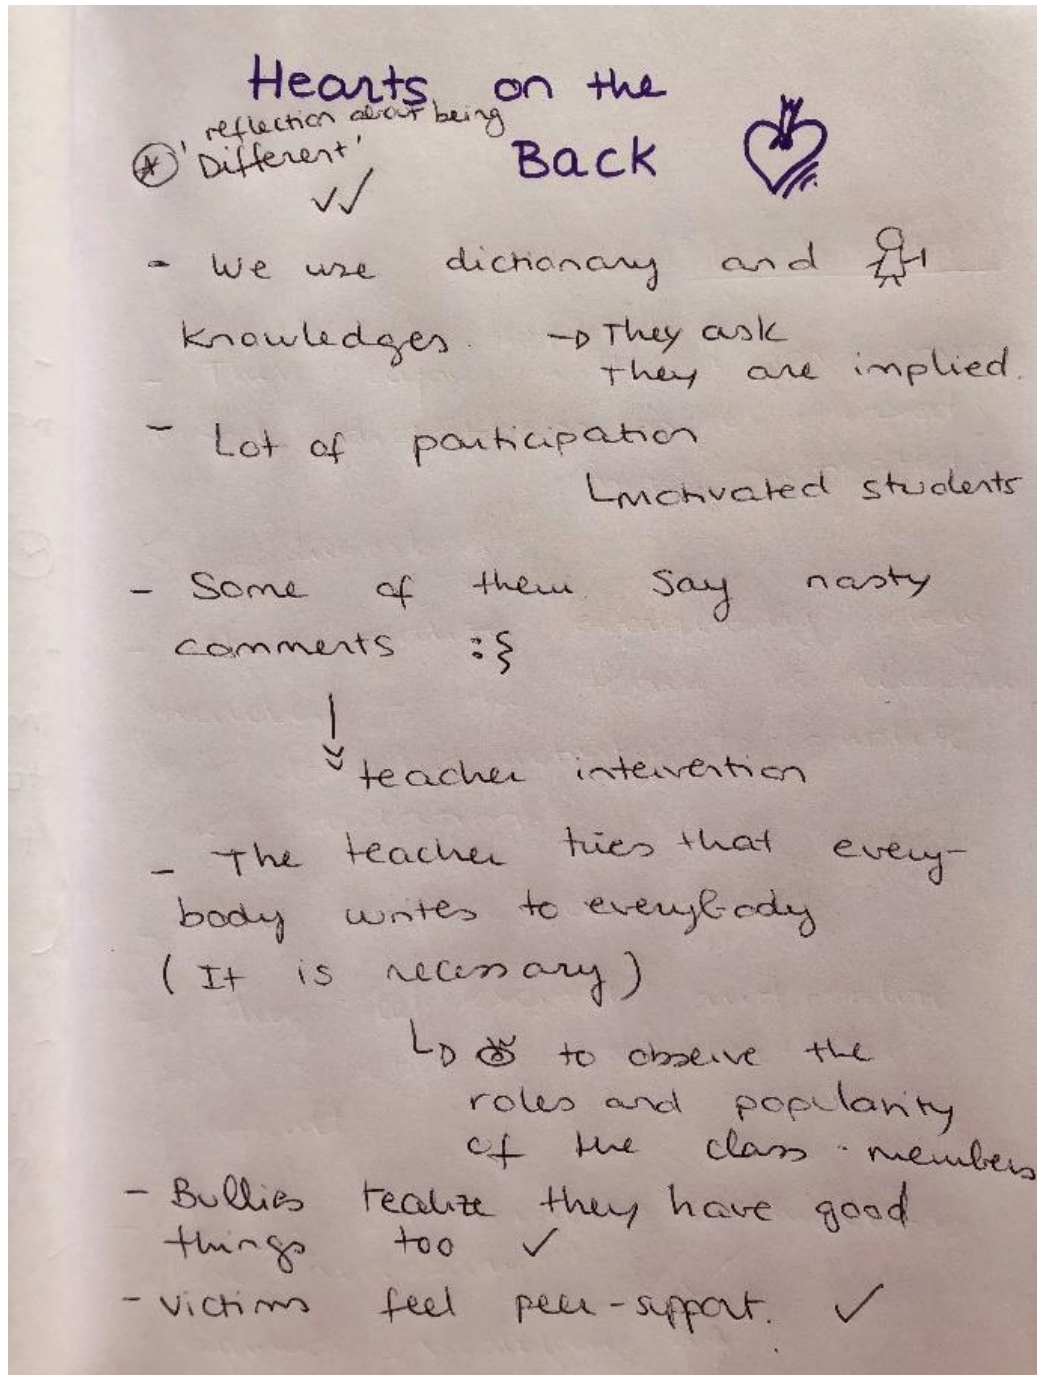 Hearts on the
Back
* 'reflection about being
Different'
- We use dictionary and
knowledges. → They ask
They are implied.
- Lot of participation
motivated students
- Some of them say nasty
comments :{
teacher intervention
- The teacher tries that every-
body writes to everybody
(It is necessary)
to observe the
roles and popularity
of the class members
- Bullies realize they have good
things too ✓
- victims feel peer-support. ✓